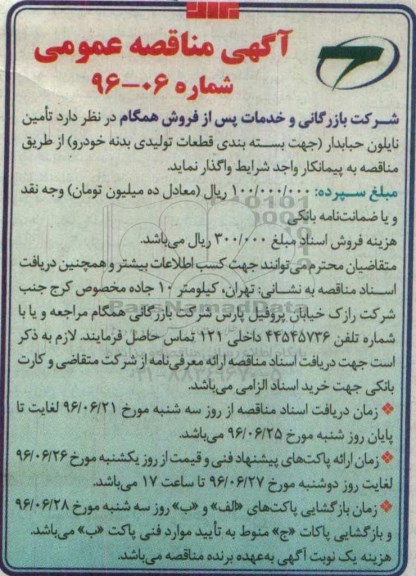 آگهی مناقصه عمومی
شماره ۰۶-۹۶
شرکت بازرگانی و خدمات پس از فروش همگام در نظر دارد تأمین
نایلون حبابدار (جهت بسته بندی قطعات تولیدی بدنه خودرو) از طریق
مناقصه به پیمانکار واجد شرایط واگذار نماید.
مبلغ سپرده: ۱۰۰/۰۰۰/۰۰۰ ریال (معادل ده میلیون تومان) وجه نقد
و یا ضمانت‌نامه بانکی
هزینه فروش اسناد مبلغ ۳۰۰/۰۰۰ ریال می‌باشد.
متقاضیان محترم می‌توانند جهت کسب اطلاعات بیشتر و همچنین دریافت
اسناد مناقصه به نشانی: تهران، کیلومتر ۱۰ جاده مخصوص کرج جنب
شرکت رازک خیابان پروفیل پارس شرکت بازرگانی همگام مراجعه و یا با
شماره تلفن ۴۴۵۴۵۷۳۶ داخلی ۱۲۱ تماس حاصل فرمایند. لازم به ذکر
است جهت دریافت اسناد مناقصه ارائه معرفی‌نامه از شرکت متقاضی و کارت
بانکی جهت خرید اسناد الزامی می‌باشد.
زمان دریافت اسناد مناقصه از روز سه شنبه مورخ ۹۶/۰۶/۲۱ لغایت تا
پایان روز شنبه مورخ ۹۶/۰۶/۲۵ می‌باشد.
زمان ارائه پاکت‌های پیشنهاد فنی و قیمت از روز یکشنبه مورخ ۹۶/۰۶/۲۶
لغایت روز دوشنبه مورخ ۹۶/۰۶/۲۷ تا ساعت ۱۷ می‌باشد.
زمان بازگشایی پاکت‌های «الف» و «ب» روز سه شنبه مورخ ۹۶/۰۶/۲۸
و بازگشایی پاکات «ج» منوط به تأیید موارد فنی پاکت «ب» می‌باشد.
هزینه یک نوبت آگهی به‌عهده برنده مناقصه می‌باشد.